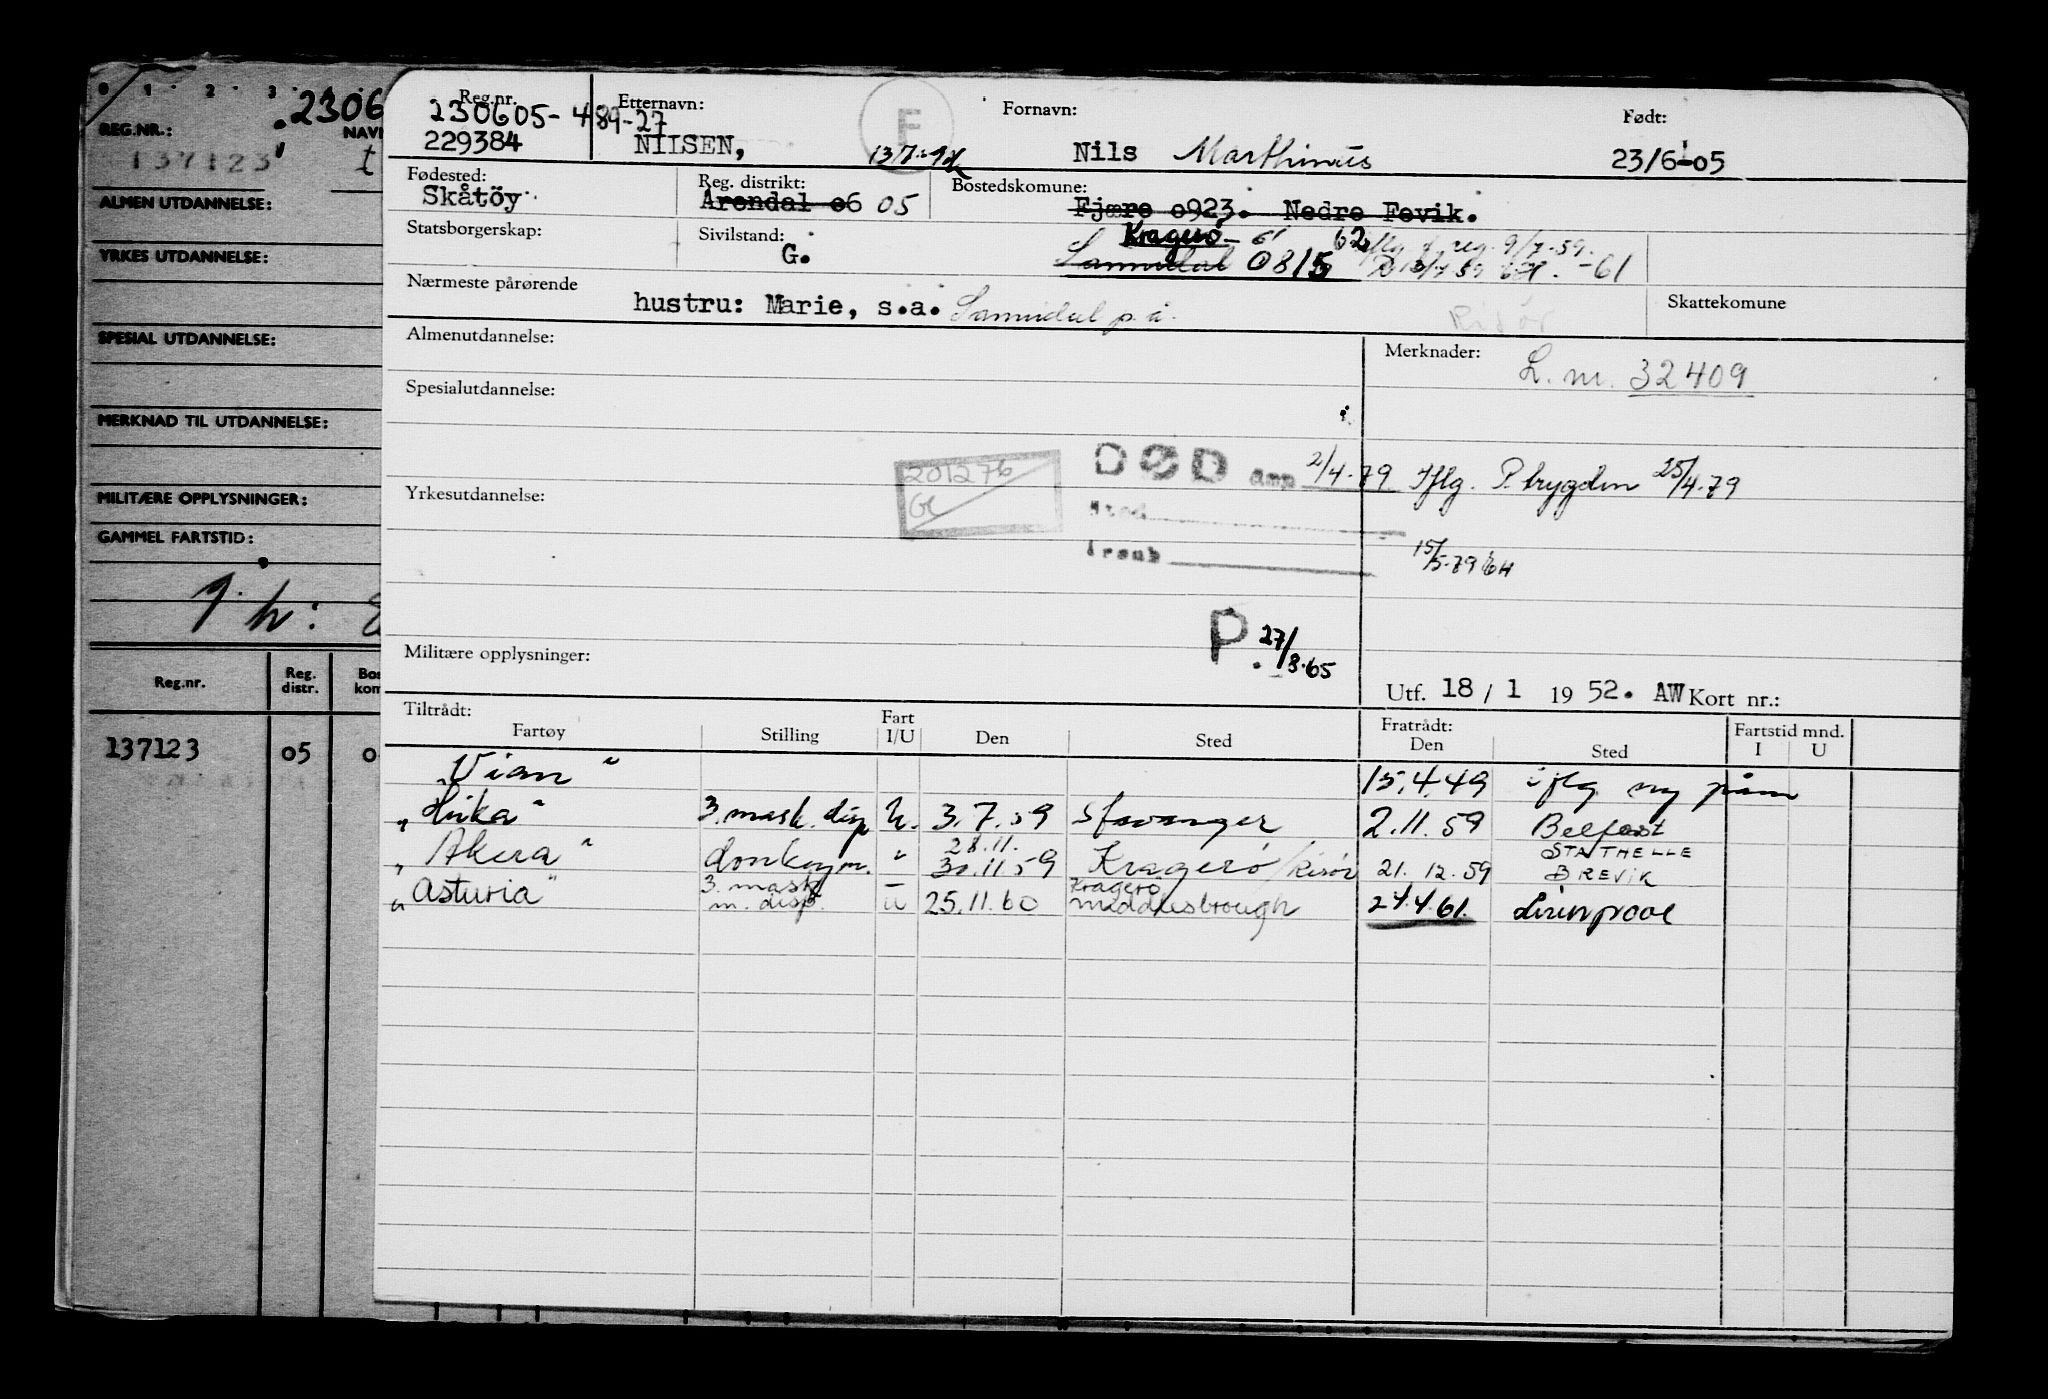 0 1 2 3
2306
REG.NR.:
NAVN
137123
t
ALMEN UTDANNELSE:
YRKES UTDANNELSE:
SPESIAL UTDANNELSE:
MERKNAD TIL UTDANNELSE:
MILITÆRE OPPLYSNINGER:
GAMMEL FARTSTID:
Reg.nr. Reg. distr. Bos kom
137123 05 0
Reg.nr. Etternavn: F Fornavn: Født:
230605-489-27
229384 NIISEN, Nils Marthinius 23/6-05
Fødested: Reg. distrikt: Bostedskomune:
Skåtöy Arendal 06 05 Fjære 0923. Nedre Fevik.
Statsborgerskap: Sivilstand: Kragerø - 61 62 iflg. f. reg. 9/7-59.
G. Sannidal 0815 -61
Nærmeste pårørende Skattekomune
hustru: Marie, s.a. Sannidal p.å. Risör
Almenutdannelse: Merknader:
L. nr. 32409
Spesialutdannelse:
201276 DØD Anm 2/4-79 Iflg. P. trygden 25/4-79
Yrkesutdannelse: Sted
Årsak 15/5-79
P. 27/3-65
Militære opplysninger:
Utf. 18/1 1952. AW Kort nr.:
Tiltrådt: Fratrådt: Fartstid mnd.
Fartøy Stilling Fart I/U Den Sted Den Sted I U
"Vian" 15.4.49 iflg ny påm
"Luka" 3. mask. disp U. 3.7.59 Stavanger 2.11.59 Belfast
"Akera" donkeym. " 28.11. 30.11.59 Kragerö/Risör 21.12.59 STATHELLE BREVIK
"Asturia" 3. mask m. disp. U 25.11.60 Kragerö Middlesbrough 24.4.61. Liverpool